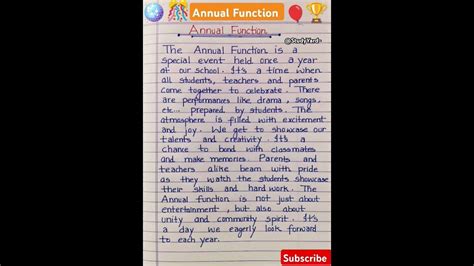 Annual Function
Annual Function
@StudyYard-
The Annual Function is a
special event held once a year
of our school. It's a time when
all students, teachers and parents
come together to celebrate. There
are performances like drama, songs,
etc... prepared by students. The
atmosphere is filled with excitement
and joy. We get to showcase our
talents and creativity. It's a
chance to bond with classmates
and make memories. Parents and
teachers alike beam with pride
as they watch the students showcase
their skills and hard work. The
Annual function is not just about
entertainment, but also about
unity and community spirit. It's
a day we eagerly look forward
to each year.
Subscribe